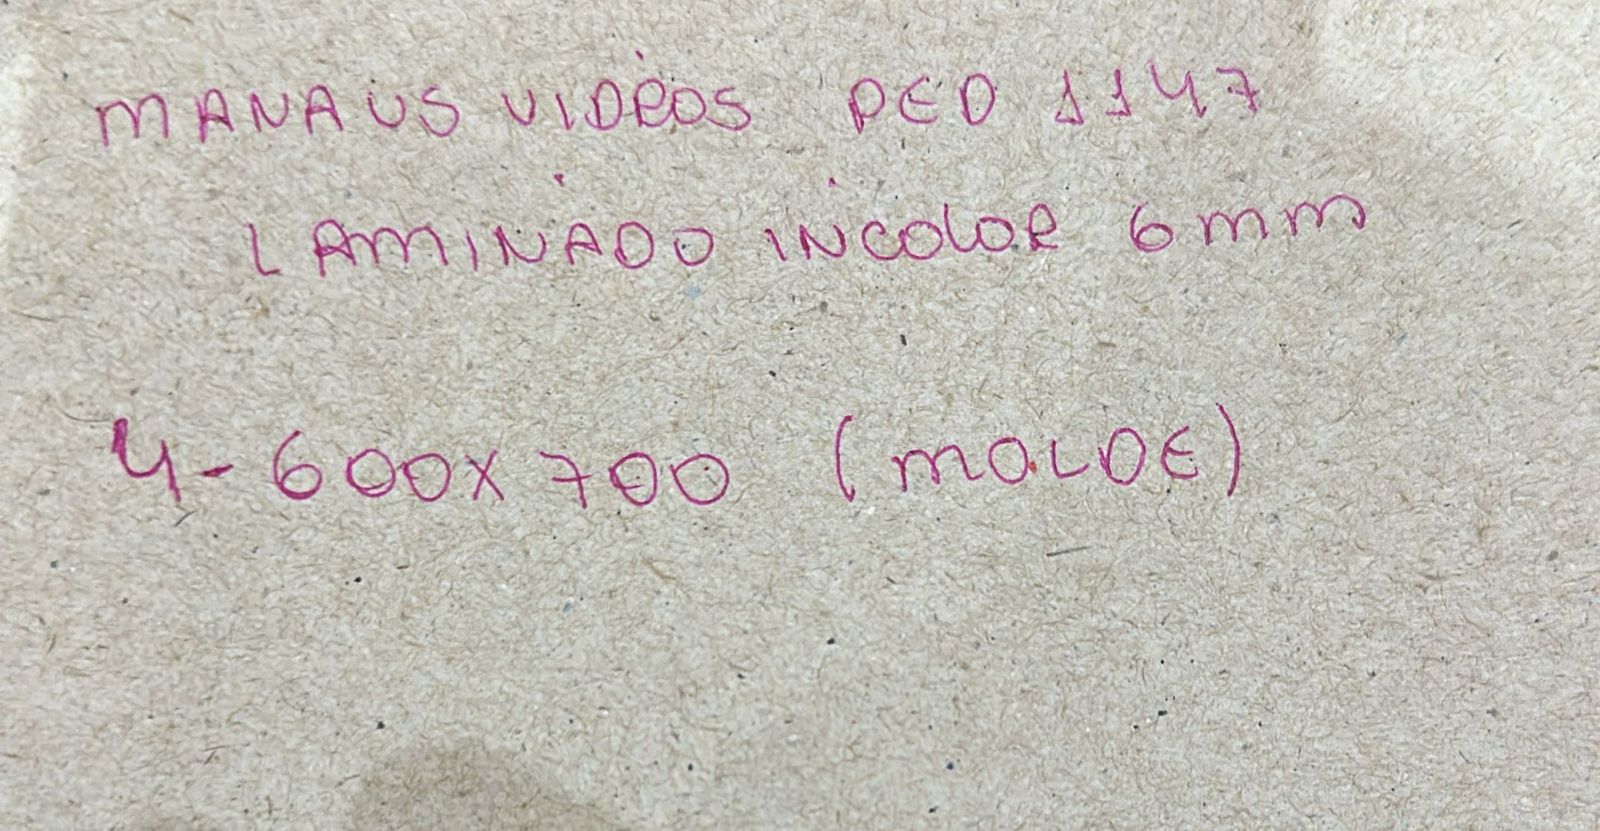 MANAUS VIDROS PED 1147
LAMINADO INCOLOR 6mm
4- 600x700 (MOLDE)